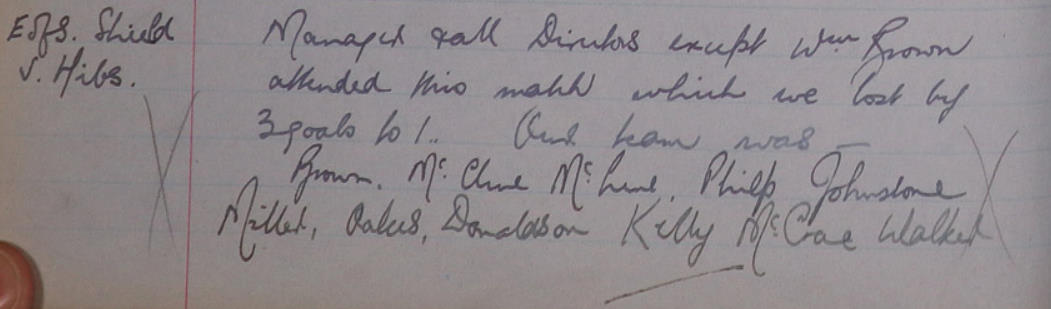 E of S. Shield
v. Hibs.
Manager & all Directors except Wm Brown
attended this match which we lost by
3 goals to 1. Our team was —
Brown, McClure McLure, Philp Johnstone
Miller, Oakes, Donaldson Kelly McCrae Walker